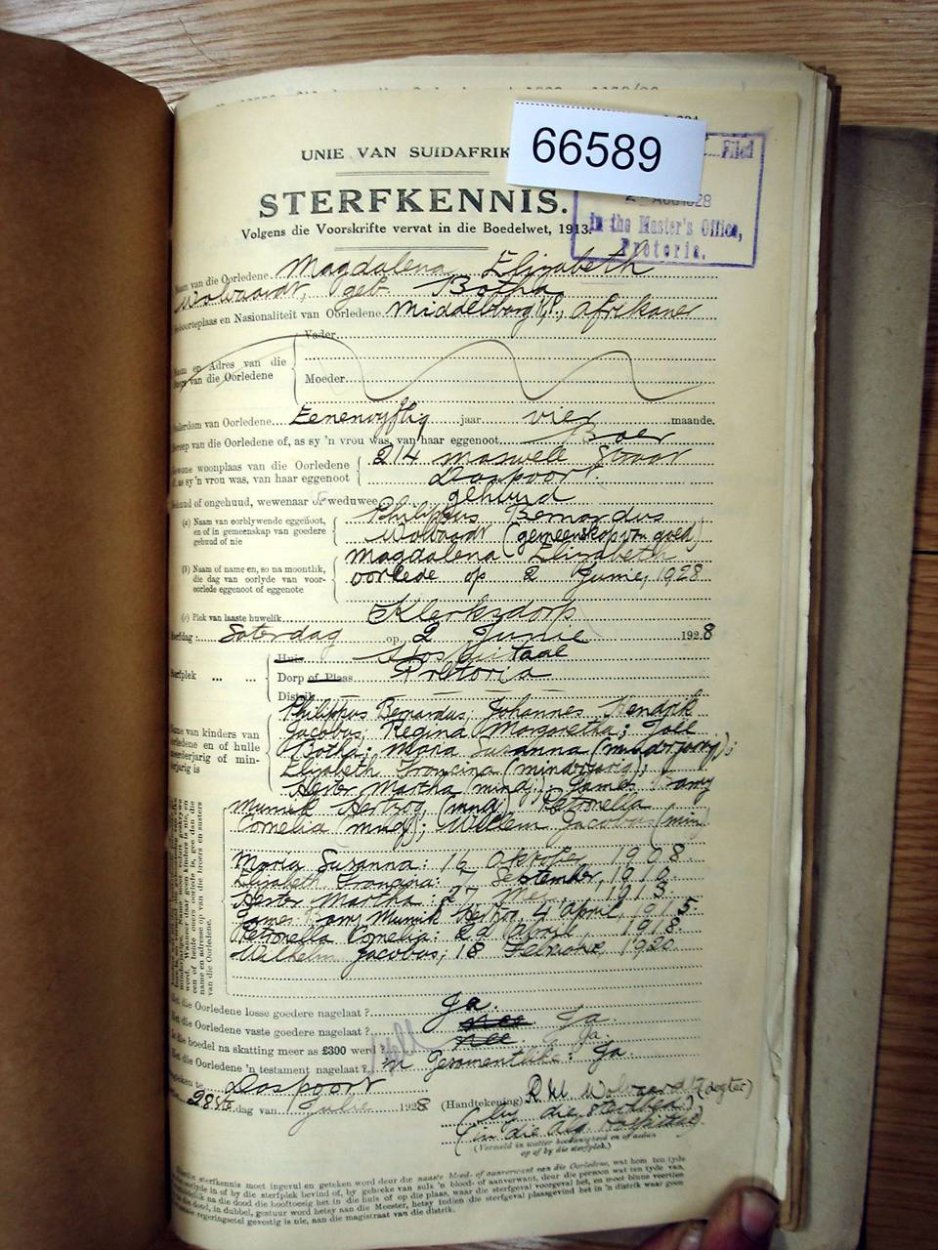 UNIE VAN SUIDAFRIK
66589
Filed
2 AUG 1928
in the Master's Office,
Pretoria.
STERFKENNIS.
Volgens die Voorskrifte vervat in die Boedelwet, 1913.
Naam van die Oorledene Magdalena Elizabeth
Wolvaardt, geb. Botha
Geboorteplaas en Nasionaliteit van Oorledene Middelburg K.P., Afrikaner
Vader
Naam en Adres van die
Ouers van die Oorledene
Moeder
Ouderdom van Oorledene Eenenvyftig jaar vier maande.
Beroep van die Oorledene of, as sy 'n vrou was, van haar eggenoot Boer
Gewone woonplaas van die Oorledene 214 Maswell Straat
of, as sy 'n vrou was, van haar eggenoot Daspoort.
Gehuud of ongehuud, wewenaar of weduwee gehuud
(a) Naam van oorblywende eggenoot, Philippus Bernardus
en of in gemeenskap van goedere Wolvaardt (gemeenskap van goed)
gehuud of nie
(b) Naam of name en, so na moontlik, Magdalena Elizabeth
die dag van oorlyde van voor- oorlede op 2 Junie, 1928
oorlede eggenoot of eggenote
(c) Plek van laaste huwelik Klerksdorp
Sterfdag: Saterdag op 2 Junie 1928
Huis Hospitaal
Sterfplek ... ... Dorp of Plaas Pretoria
Distrik
Philippus Bernardus; Johannes Hendrik
Jacobus; Regina Margaretha;
Name van kinders van Botha; Maria Susanna (minderjarig);
oorledene en of hulle Elizabeth Francina (minderjarig);
meerderjarig of min- Hester Martha (mindj); James Barry
derjarig is
Munnik Hertzog, (mindj) Petronella
Cornelia (mindj); Willem Jacobus (min
Maria Susanna: 16 Oktober, 1908.
Elizabeth Francina: 7 September, 1910.
Hester Martha: 27 1913.
James Barry Munnik Hertzog, 4 April, 1915
Petronella Cornelia: 22 April, 1918.
Wilhelm Jacobus, 18 Februarie, 1920.
Het die Oorledene losse goedere nagelaat? Ja.
Het die Oorledene vaste goedere nagelaat? nee Ja
Is die boedel na skatting meer as £300 werd? nee Ja
Het die Oorledene 'n testament nagelaat? 'n Gesamentlike: Ja.
Gegeven te Daspoort
28ste dag van Julie 1928
(Handtekening) R M Wolvaardt (dogter)
(by die sterfbed)
(in die Alg. Hospitaal)
(Vermeld in watter hoedanigheid en of aldan
op of by die sterfplek.)